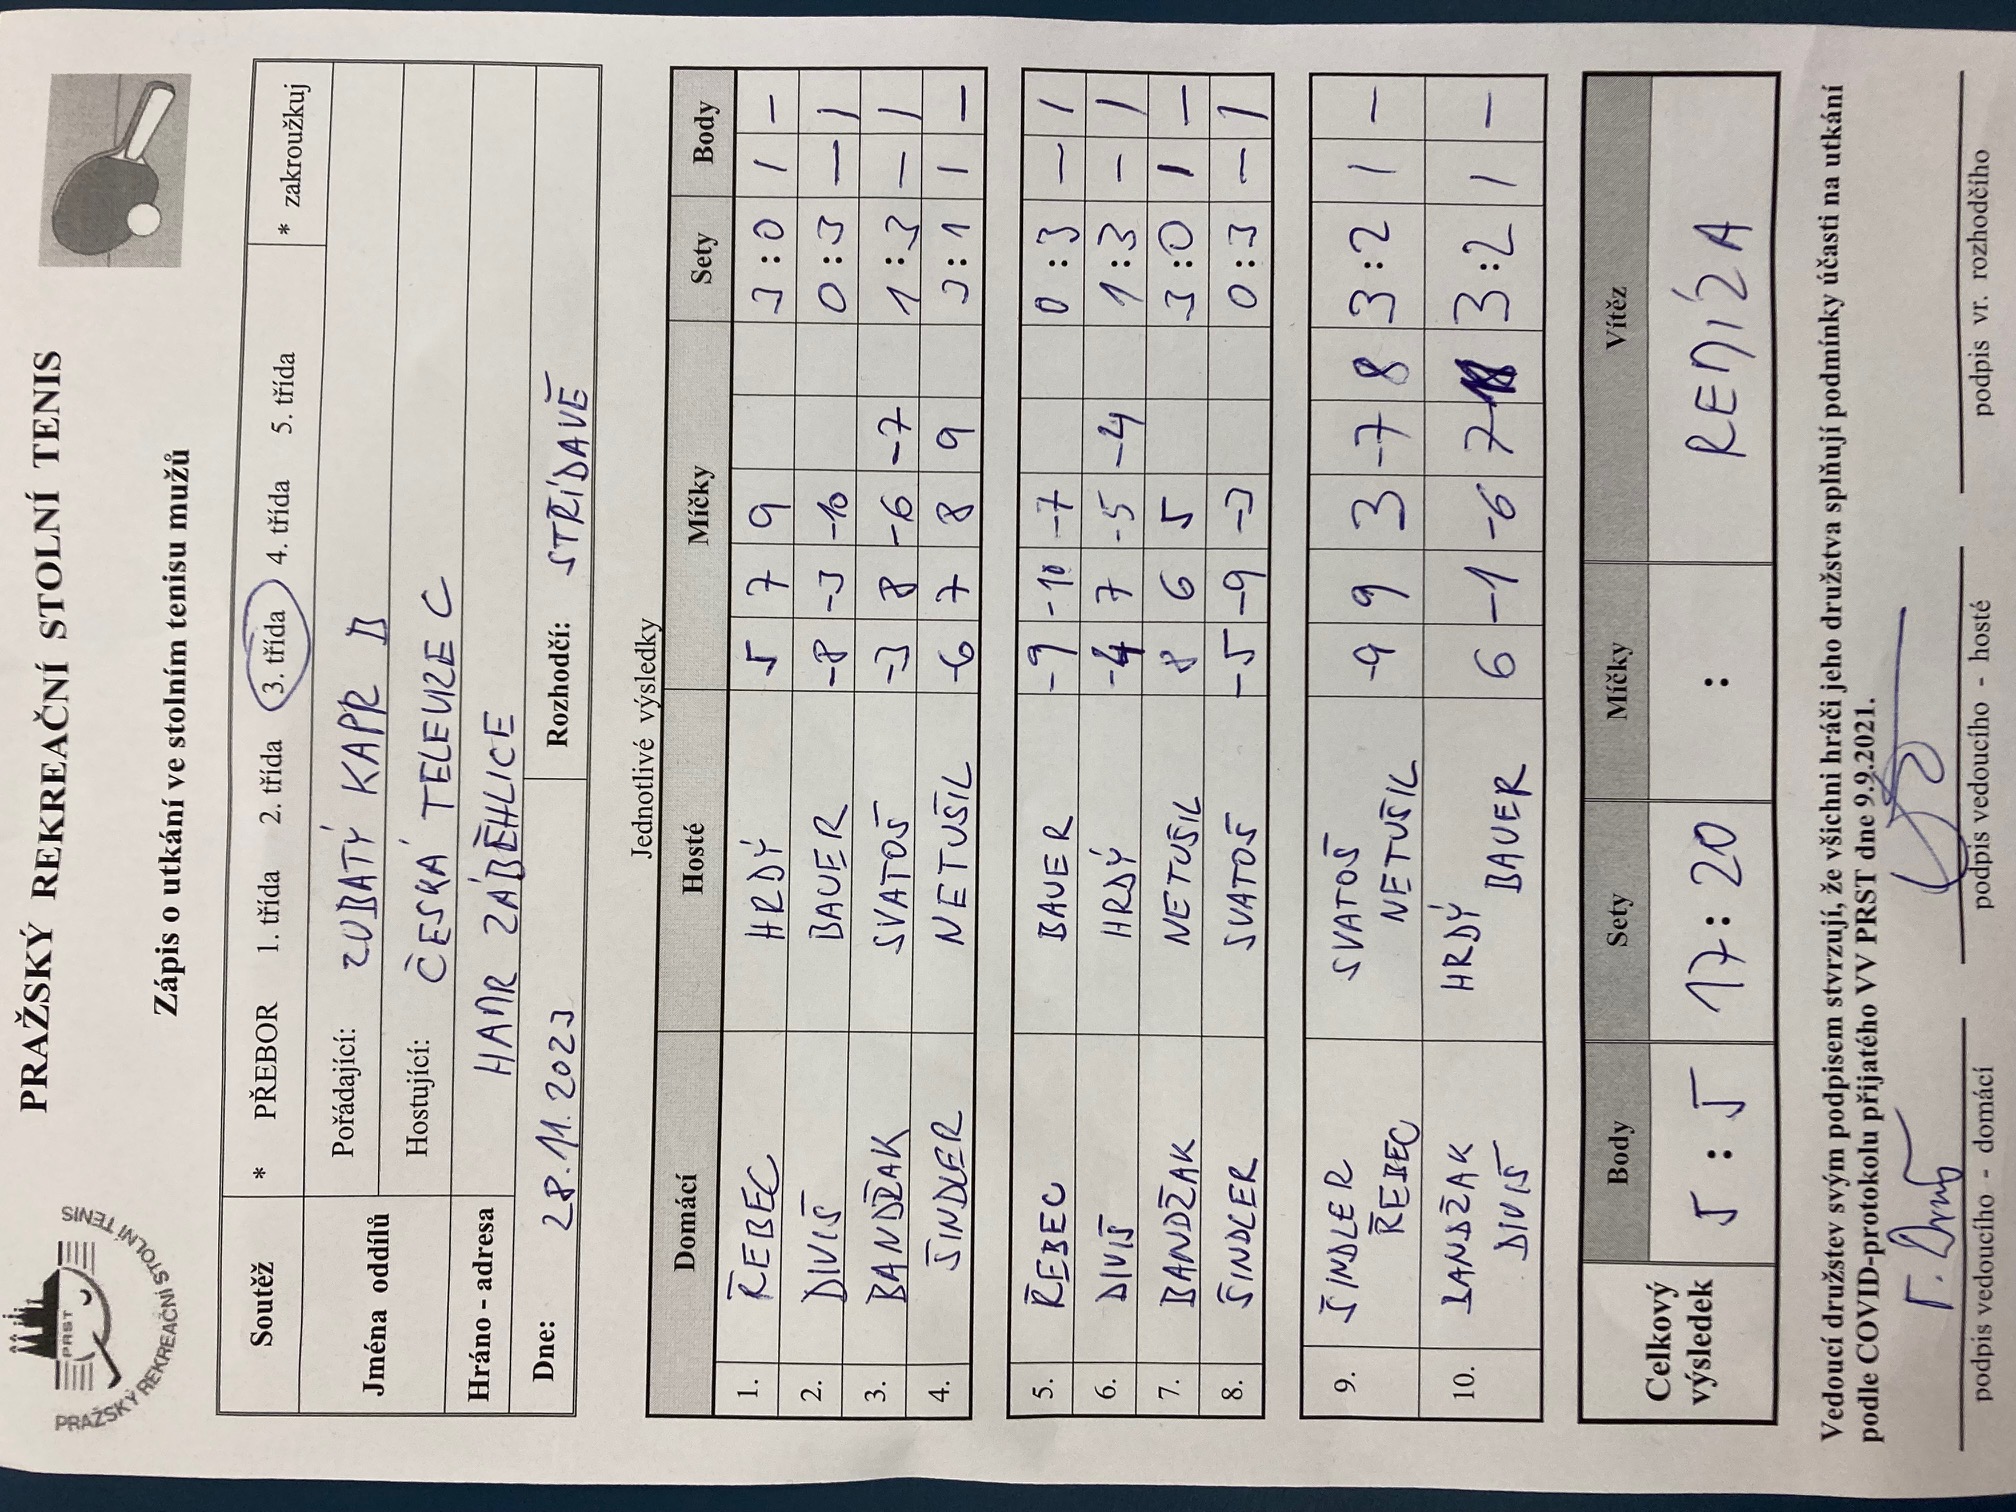 PRAŽSKÝ REKREAČNÍ STOLNÍ TENIS
PRST
PRAŽSKÝ REKREAČNÍ STOLNÍ TENIS
Zápis o utkání ve stolním tenisu mužů
Soutěž * PŘEBOR 1. třída 2. třída 3. třída 4. třída 5. třída * zakroužkuj
Jména oddílů Pořádající: ZUBATÝ KAPR B
Hostující: ČESKÁ TELEVIZE C
Hráno - adresa HAMR ZÁBĚHLICE
Dne: 28.11.2023 Rozhodčí: STŘÍDAVĚ
Jednotlivé výsledky
Domácí Hosté Míčky Sety Body
1. ŘEBEC HRDÝ 5 7 9 3:0 1 –
2. DIVIŠ BAUER -8 -3 -10 0:3 – 1
3. BANDŽAK SVATOŠ -3 8 -6 -7 1:3 – 1
4. ŠINDLER NETUŠIL -6 7 8 9 3:1 1 –
5. ŘEBEC BAUER -9 -10 -7 0:3 – 1
6. DIVIŠ HRDÝ -4 7 -5 -4 1:3 – 1
7. BANDŽAK NETUŠIL 8 6 5 3:0 1 –
8. ŠINDLER SVATOŠ -5 -9 -3 0:3 – 1
9. ŠINDLER ŘEBEC SVATOŠ NETUŠIL -9 9 3 -7 8 3:2 1 –
10. BANDŽAK DIVIŠ HRDÝ BAUER 6 -1 -6 7 3:2 1 –
Celkový výsledek Body Sety Míčky Vítěz
5:5 17:20 : REMÍZA
Vedoucí družstev svým podpisem stvrzují, že všichni hráči jeho družstva splňují podmínky účasti na utkání
podle COVID-protokolu přijatého VV PRST dne 9.9.2021.
podpis vedoucího - domácí podpis vedoucího - hosté podpis vr. rozhodčího